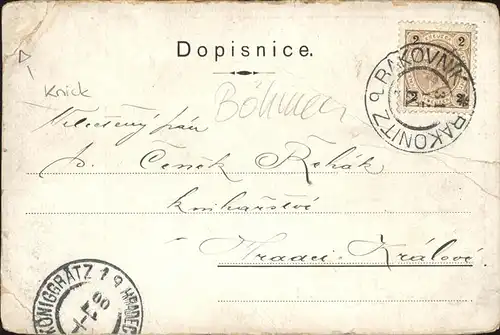 Dopisnice.
2 2
RAKOVNÍK
RAKONITZ
Knick
Böhmen
Velectěný pán
p. Čeněk Řehák
knihařství
Hradci Králové
KÖNIGGRATZ 1 HRADEC
00